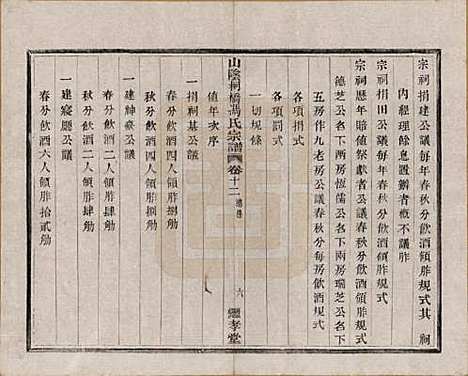 宗祠捐建公議每年春秋分飲酒領胙規式其祠
內經理餘息置辦者概不議胙
宗祠捐田公議每年春秋分飲酒領胙規式
宗祠歷年賠值祭獻者公議春秋分飲酒領胙規式
德芝公名下兩房恆儒公名下兩房瑞芝公名下
五房作九老房公議春秋分每房飲酒規式
各項捐式
各項罰式
一切規條
值年次序
山陰柯橋馮氏宗譜
卷十二
六
繼孝堂
一捐祠基公議
春分飲酒四人領胙捌觔
秋分飲酒四人領胙捌觔
一建神龕公議
春分飲酒二人領胙肆觔
秋分飲酒二人領胙肆觔
一建寢廳公議
春分飲酒六人領胙拾貳觔